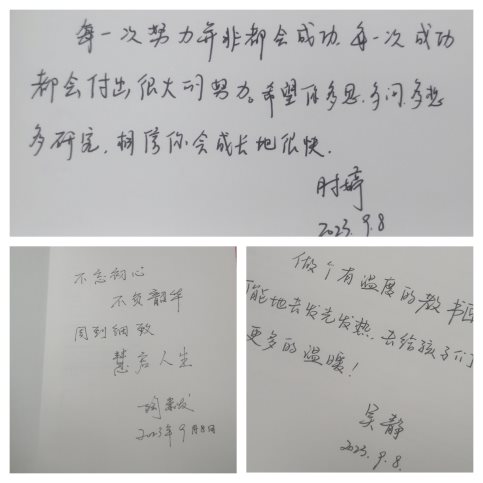 每一次努力并非都会成功,每一次成功
都会付出很大的努力。希望你多思、多问、多想
多研究,相信你会成长地很快.
时婷
2023.9.8
不忘初心
不负韶华
周到细致
慧启人生
2023年9月8日
做个有温度的教书匠
可能地去发光发热,去给孩子们
更多的温暖!
吴静
2023.9.8.